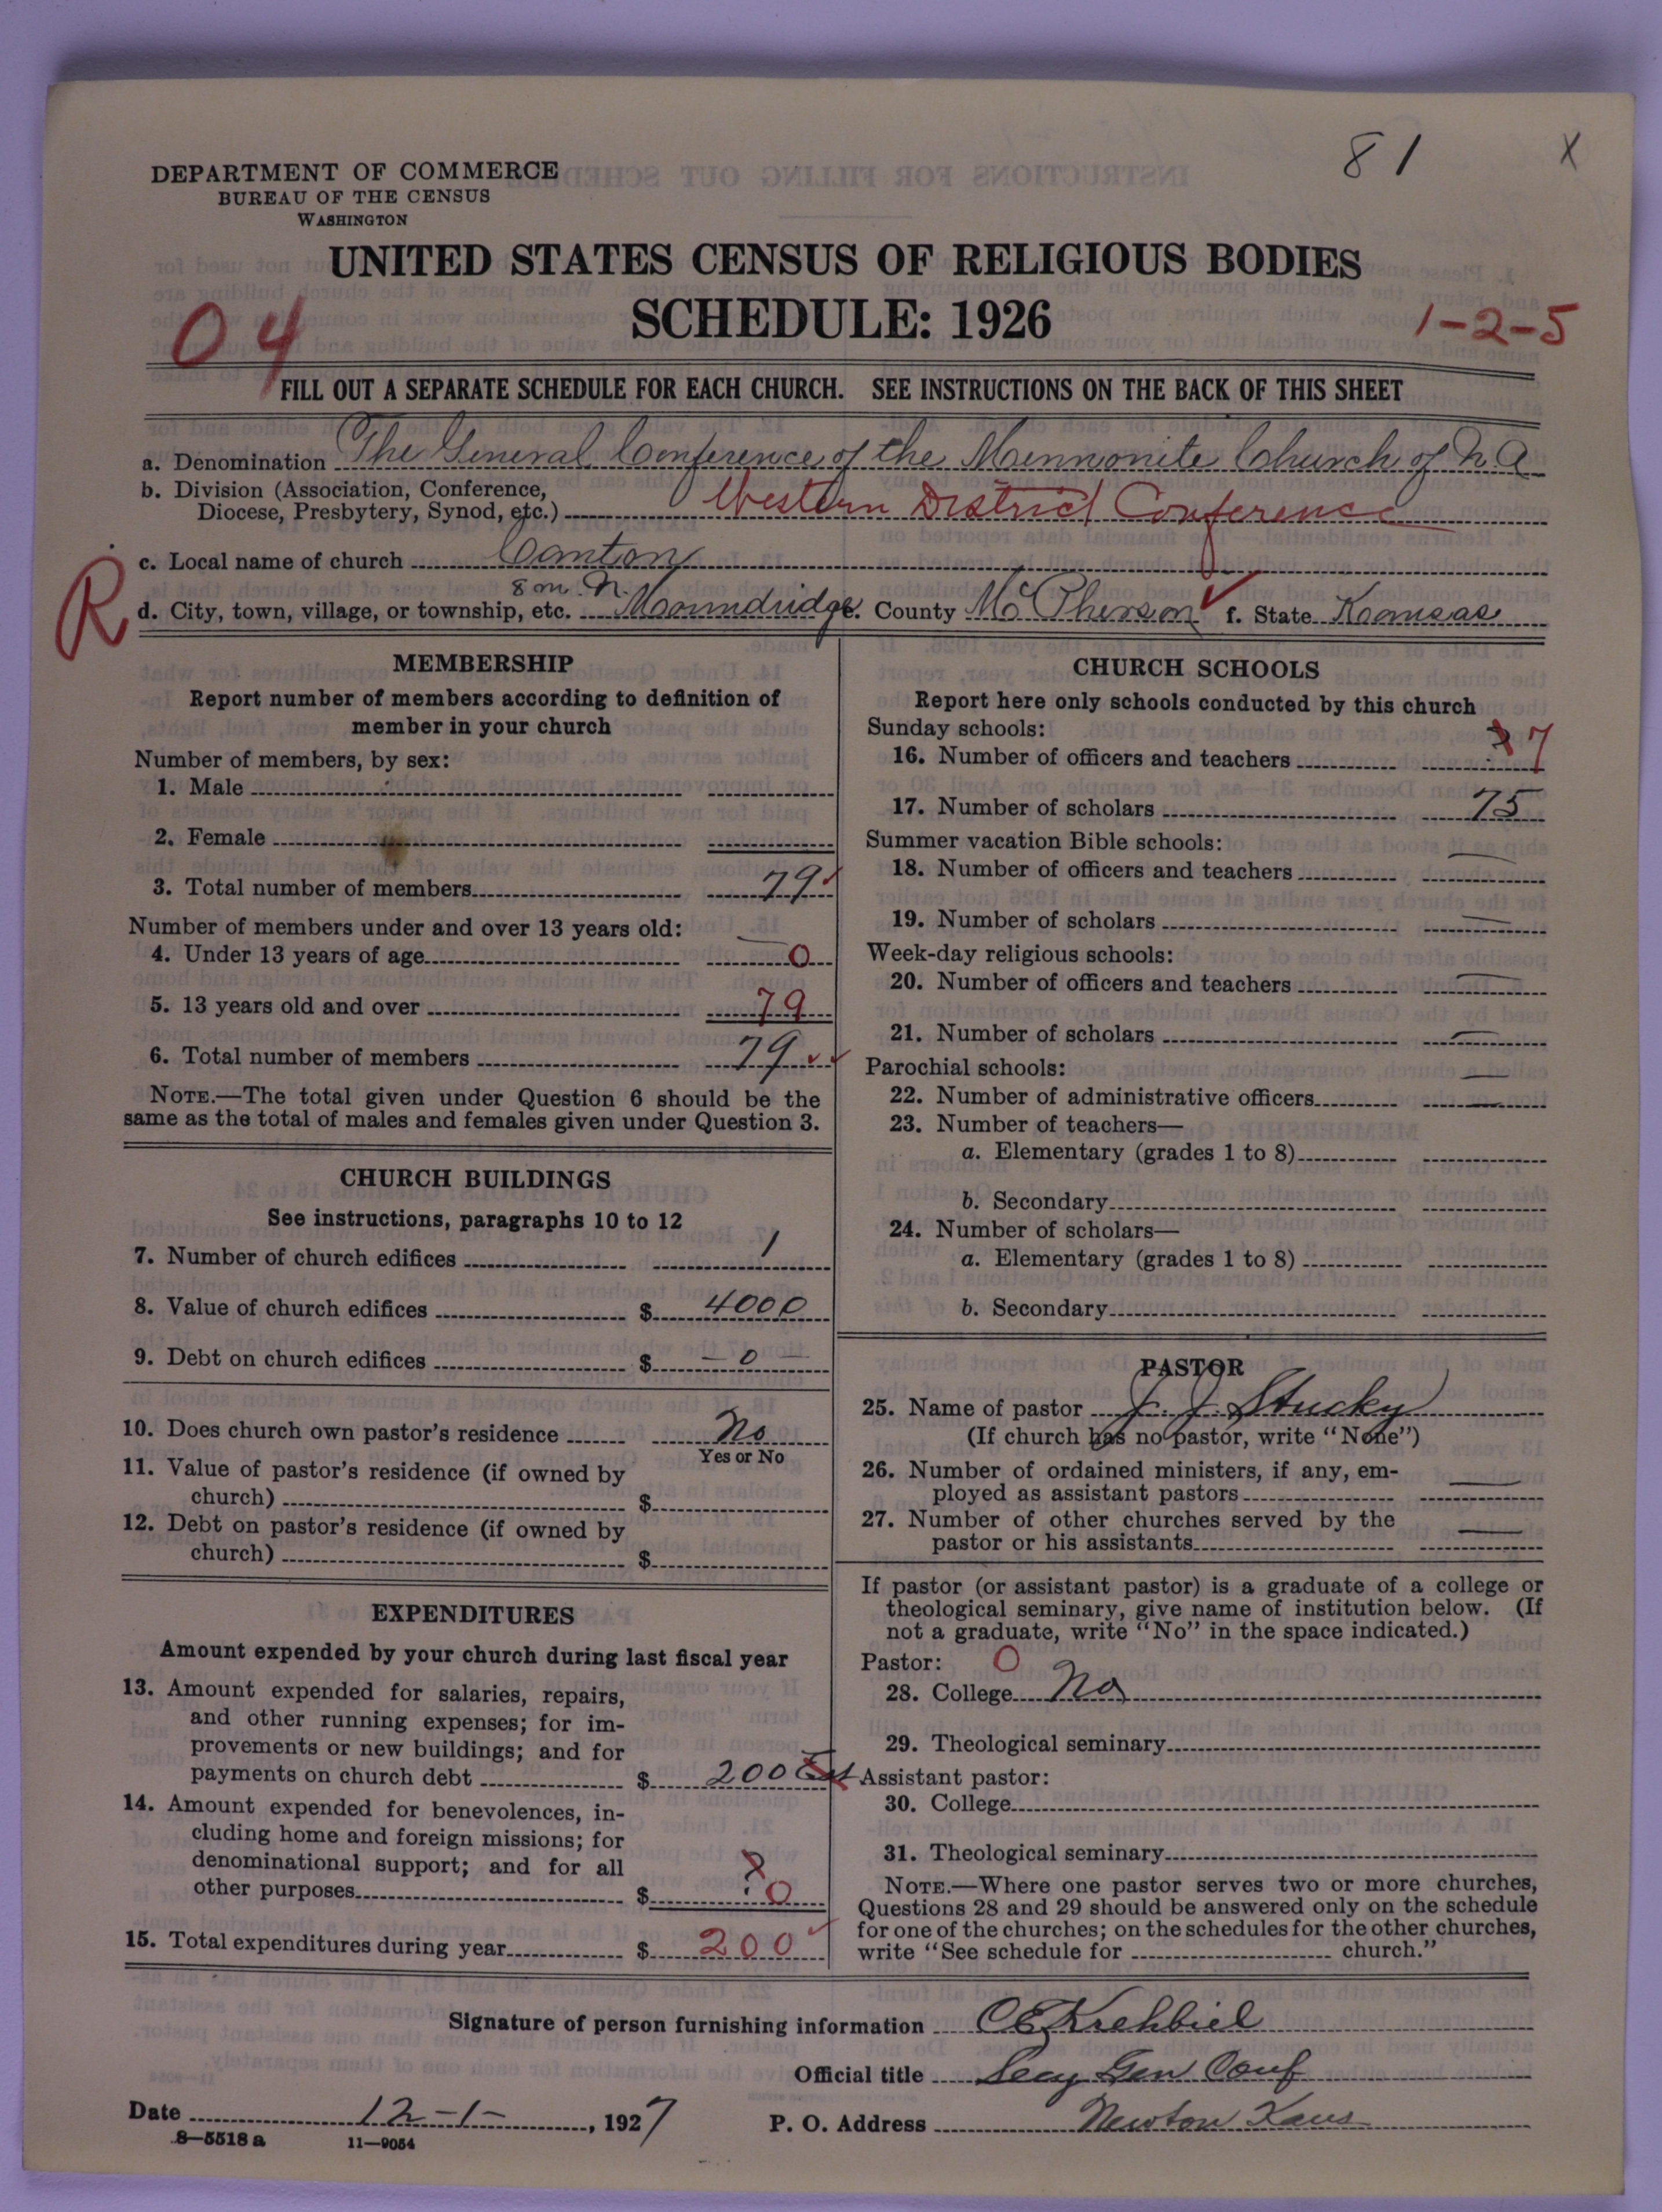 81 X
DEPARTMENT OF COMMERCE
BUREAU OF THE CENSUS
WASHINGTON
UNITED STATES CENSUS OF RELIGIOUS BODIES
SCHEDULE: 1926
04
1-2-5
FILL OUT A SEPARATE SCHEDULE FOR EACH CHURCH. SEE INSTRUCTIONS ON THE BACK OF THIS SHEET
a. Denomination The General Conference of the Mennonite Church of N A
b. Division (Association, Conference,
Diocese, Presbytery, Synod, etc.) Western District Conference
c. Local name of church Canton
R
8 m. N.
d. City, town, village, or township, etc. Moundridge e. County McPherson f. State Kansas
MEMBERSHIP
Report number of members according to definition of
member in your church
Number of members, by sex:
1. Male
2. Female
3. Total number of members 79
Number of members under and over 13 years old:
4. Under 13 years of age 0
5. 13 years old and over 79
6. Total number of members 79
NOTE.—The total given under Question 6 should be the
same as the total of males and females given under Question 3.
CHURCH BUILDINGS
See instructions, paragraphs 10 to 12
7. Number of church edifices 1
8. Value of church edifices $ 4000
9. Debt on church edifices $ — 0 —
10. Does church own pastor's residence No
Yes or No
11. Value of pastor's residence (if owned by
church) $
12. Debt on pastor's residence (if owned by
church) $
EXPENDITURES
Amount expended by your church during last fiscal year
13. Amount expended for salaries, repairs,
and other running expenses; for im-
provements or new buildings; and for
payments on church debt $ 200 Est
14. Amount expended for benevolences, in-
cluding home and foreign missions; for
denominational support; and for all
other purposes $ ? 0
15. Total expenditures during year $ 200
CHURCH SCHOOLS
Report here only schools conducted by this church
Sunday schools:
16. Number of officers and teachers ? 7
17. Number of scholars 75
Summer vacation Bible schools:
18. Number of officers and teachers —
19. Number of scholars —
Week-day religious schools:
20. Number of officers and teachers —
21. Number of scholars —
Parochial schools:
22. Number of administrative officers —
23. Number of teachers—
a. Elementary (grades 1 to 8)
b. Secondary
24. Number of scholars—
a. Elementary (grades 1 to 8)
b. Secondary
PASTOR
25. Name of pastor J. J. Stucky
(If church has no pastor, write "None")
26. Number of ordained ministers, if any, em-
ployed as assistant pastors —
27. Number of other churches served by the
pastor or his assistants —
If pastor (or assistant pastor) is a graduate of a college or
theological seminary, give name of institution below. (If
not a graduate, write "No" in the space indicated.)
Pastor: 0
28. College No
29. Theological seminary
Assistant pastor:
30. College
31. Theological seminary
NOTE.—Where one pastor serves two or more churches,
Questions 28 and 29 should be answered only on the schedule
for one of the churches; on the schedules for the other churches,
write "See schedule for church."
Signature of person furnishing information C E Krehbiel
Official title Secy Gen Conf
Date 12-1-, 1927 P. O. Address Newton Kans
8—5518 a 11—9054